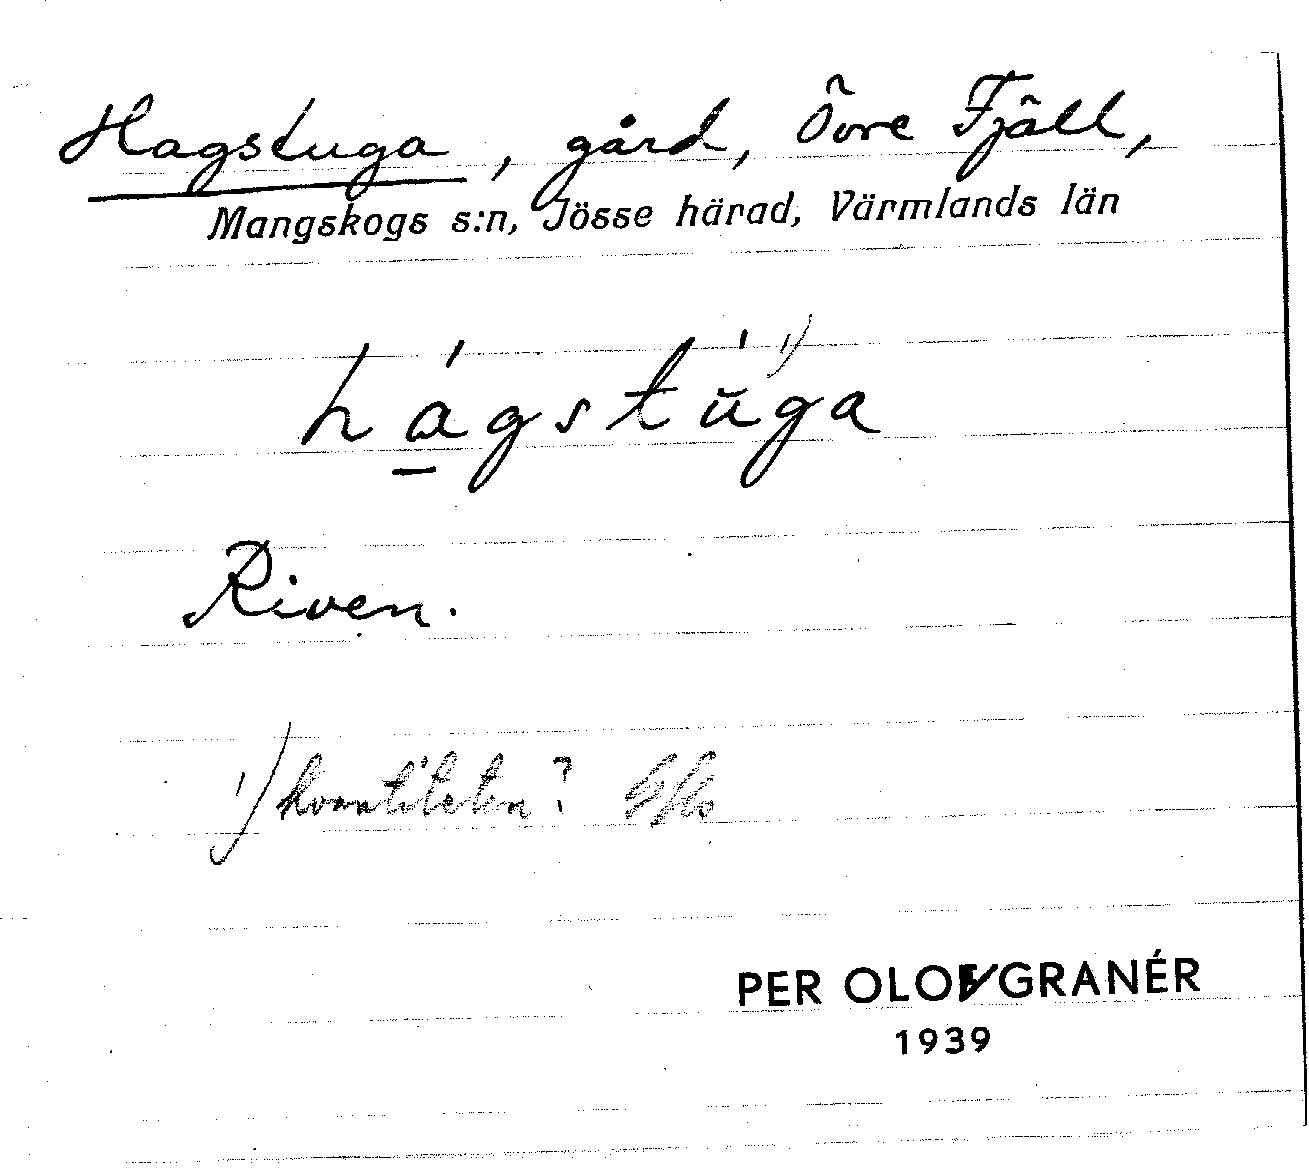 Hagstuga, gård, Övre Fjäll,
Mangskogs s:n, Jösse härad, Värmlands län
hágstúga 1)
Riven.
1) kvantiteten?
PER OLOV GRANÉR
1939